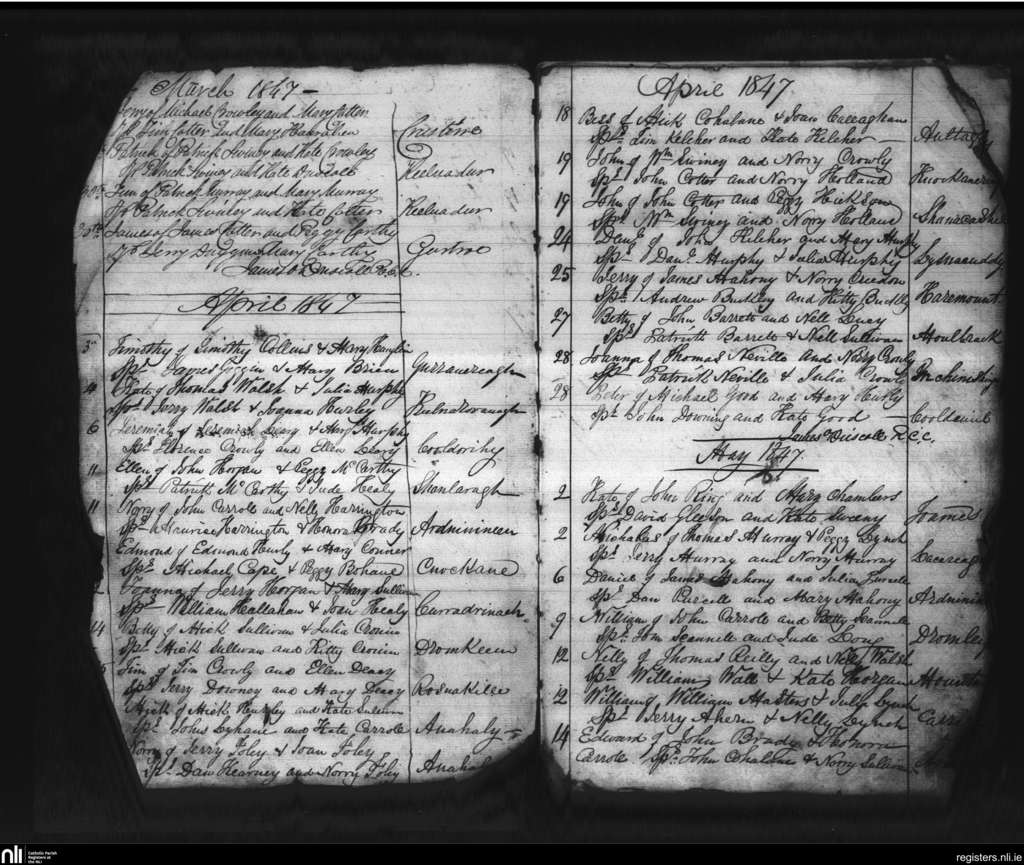 March 1847 -
Jerry of Michael Crowley and Mary Cotten
Sp Tim Cotter and Mary Hanrahen
Patrick of Patrick Swiney and Kate Crowley
Sp Patrick Swiney and Kate Driscoll
Keeluadur
Tim of Patrick Murray and Mary Murray
Sp Patrick Swiney and Kate Cotter
Keeluadur
James of James Cotter and Peggy Carthy
Sp Jerry Duggan Mary Carthy
April 1847
Timothy of Timothy Collins & Mary Hanglin
Sps James Goggin & Mary Brien
Gurranereagh
Kate of Thomas Walsh & Julia Murphy
Sps Jerry Walsh & Joanna Hurley
6 Jeremiah of Jeremiah Deasy & Mary Murphy
Sps Florence Crowly and Ellen Deasy
Cooldorihy
11 Ellen of John Horgan & Peggy McCarthy
Sps Patrick McCarthy & Jude Healy
Shanlaragh
11 Norry of John Carrole and Nelly Harrington
Sps Maurice Harrington & Honora Brady
Ardnimineen
Edmond of Edmond Hurly & Mary Conner
Sps Michael Cape & Peggy Bohane
Cnockane
Joanna of Jerry Horgan & Mary Sullivan
Sps William Heallahan & Joan Healy
Curradrinach
14 Betty of Mick Sullivan & Julia Cronin
Sps Mick Sullivan and Kitty Cronin
Dromkeen
Tim of Tim Crowly and Ellen Deasy
Sps Jerry Downey and Mary Deasy
Rosnakille
Mick of Mick Hurley and Kate Sullivan
Sps John Lyhane and Kate Carrole
Anahaly
Norry of Jerry Foley & Joan Foley
Sps Dan Kearney and Norry Foley
Anahaly
April 1847
18 Bess of Mick Cohalane & Joan Callaghan
Sps Tim Kelcher and Kate Kelcher
19 John of Wm Swiney and Norry Crowly
Sps John Cotter and Norry Holland
19 John of John Cotter and Peggy Hickson
Sps Wm Swiney and Norry Holland
24 Danl of John Kelcher and Mary Murphy
Sps Danl Murphy and Julia Murphy
25 Jerry of James Mahony & Norry Creedon
Sps Andrew Buckley and Kitty Buckley
Haremount
27 Betty of John Barrett and Nell Lucy
Sps Patrick Barrett & Nell Sullivan
Moulbrack
28 Joanna of Thomas Neville and Mary Crowly
Sps Patrick Neville & Julia Crowly
28 Peter of Michael Good and Mary Hurly
Sps John Downing and Kate Good
James O'Driscoll R.C.C.
May 1847.
2 Kate of John Ring and Mary Chambers
Sps David Gleeson and Kate Sweeny
2 Michalas of Thomas Murray & Peggy Lynch
Sps Jerry Murray and Norry Murray
6 Daniel of James Mahony and Julia Purcell
Sps Dan Purcell and Mary Mahony
9 William of John Carrole and Betty Scannell
Sps Tom Scannell and Jude Long
12 Nelly of Thomas Reilly and Nelly Walsh
Sps William Wall & Kate Horgan
12 William of William Masters & Julia Lynch
Sps Jerry Ahern & Nelly Lynch
14 Edward of John Brady & Honora
Carrole / Sps John Cohalane & Norry Sullivan
nli Catholic Parish Registers at the NLI
registers.nli.ie